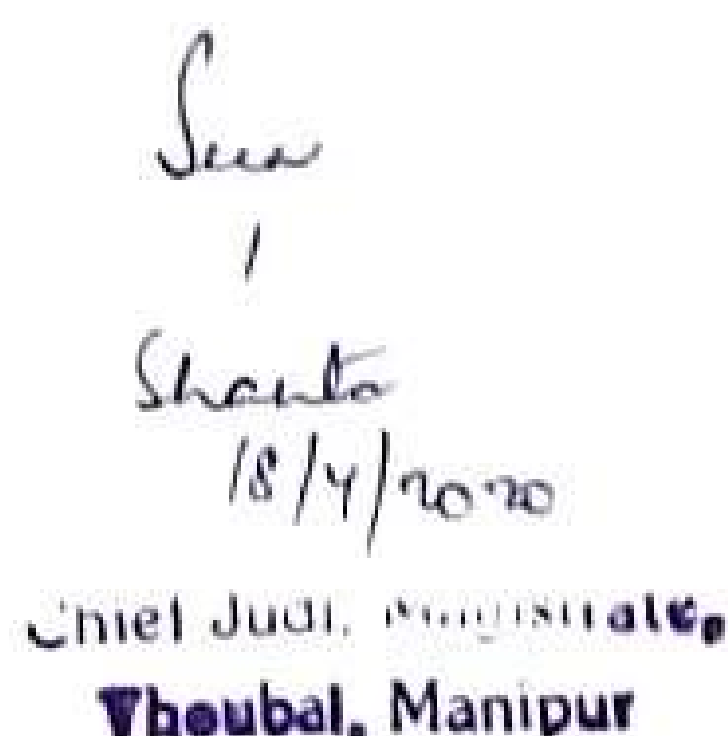 Seen
/
Shanta
18/4/2020
Chief Judl. Magistrate,
Thoubal, Manipur